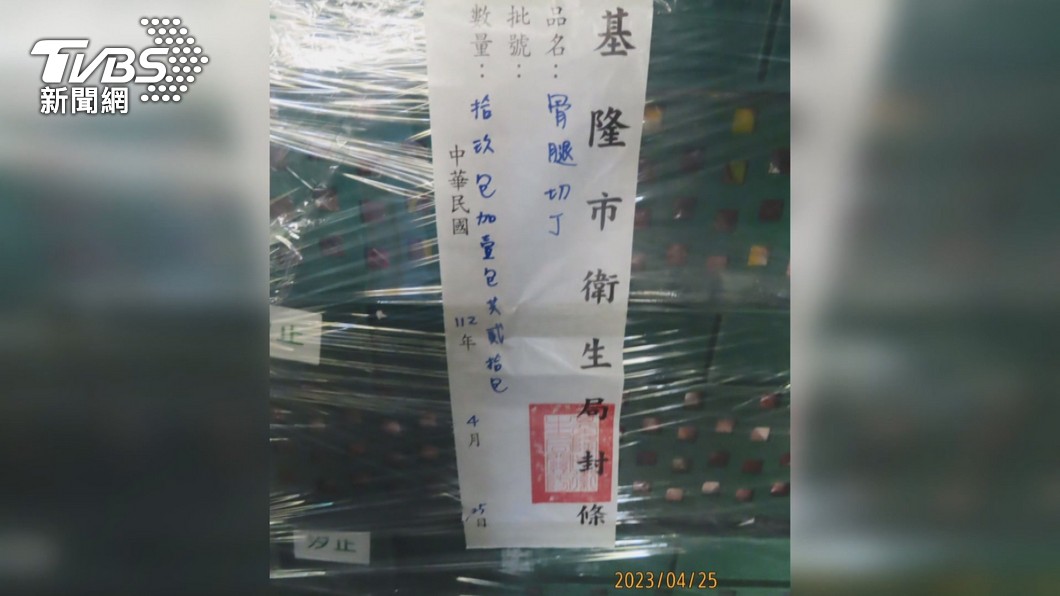 TVBS
新聞網
基隆市衛生局封條
品名：骨腿切丁
批號：
數量：拾玖包加壹包共貳拾包
中華民國 112年 4月 25日
止
汐止
2023/04/25